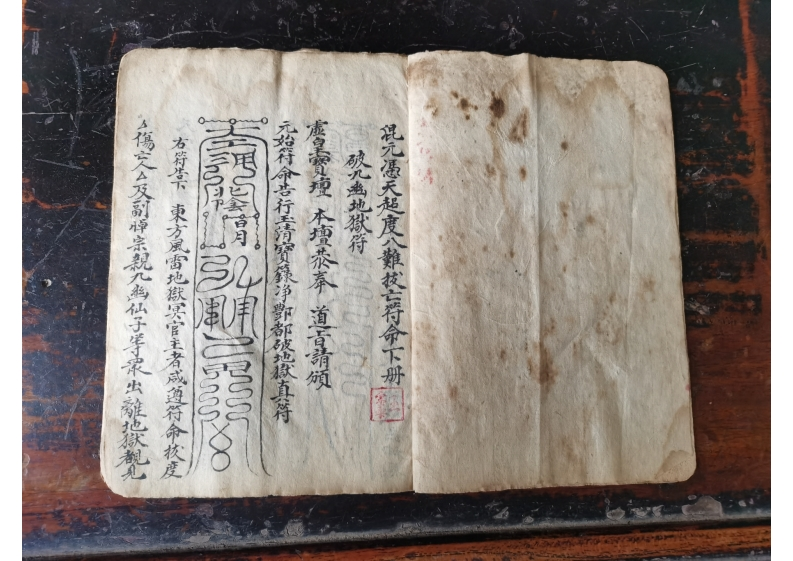 混元憑天起度八難拔亡符命下册
破九幽地獄符
虛皇寶壇 本壇恭奉 道旨請頒
元始符命告行玉清寶籙淨酆都破地獄真符
右符告下 東方風雷地獄冥官主者咸遵符命拔度
厶傷亡人厶及副禪宗親九幽仙子等眾出離地獄觀見